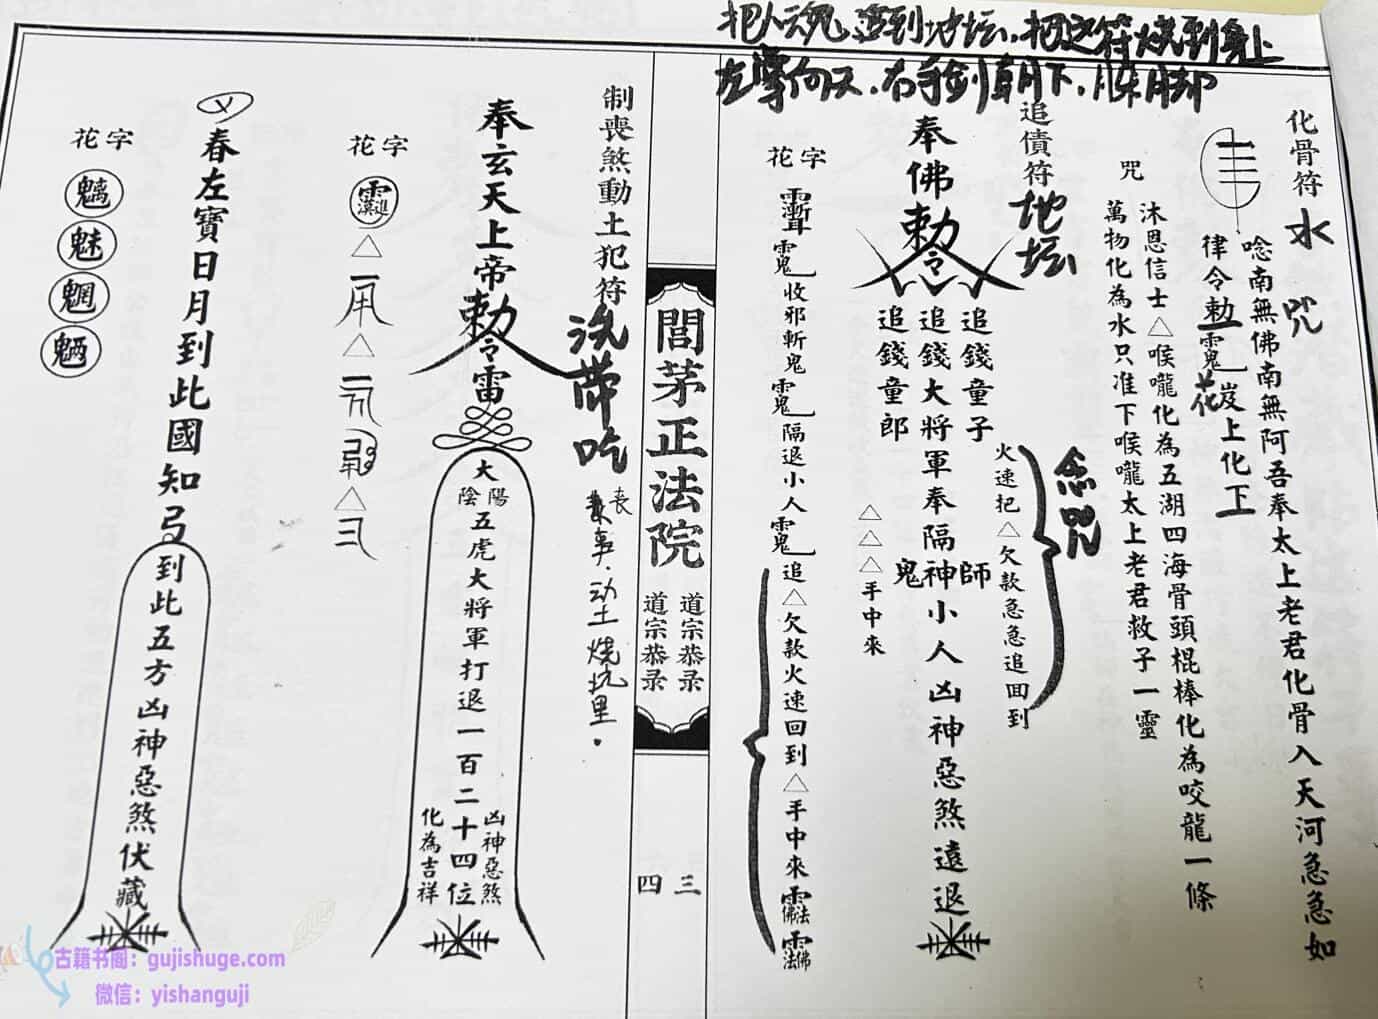 把人魂追到地坛，把这符烧到身上
左掌向天，右手剑朝下，
化骨符
水咒
唸南無佛南無阿吾奉太上老君化骨入天河急急如
律令勅
上化
花
咒
沐恩信士△喉嚨化為五湖四海骨頭棍棒化為咬龍一條
萬物化為水只准下喉嚨太上老君救子一靈
追債符
地坛
念咒
火速把△欠款急急追回到
奉佛勅令
追錢童子
追錢大將軍奉隔神小人凶神惡煞遠退
師
鬼
追錢童郎
△△△手中來
花字
收邪斬鬼
隔退小人
追△欠款火速回到△手中來
閭茅正法院
道宗恭录
道宗恭录
三四
制喪煞動土犯符
洗带吃
丧事．动土烧坑里．
奉玄天上帝勅令雷
大
陽
陰
五虎大將軍打退一百二十四位
凶神惡煞
化為吉祥
花字
△
△
△
春左寶日月到此國知弓
到此五方凶神惡煞伏藏
花字
魑
魅
魍
魎
古籍书阁：gujishuge.com
微信：yishanguji